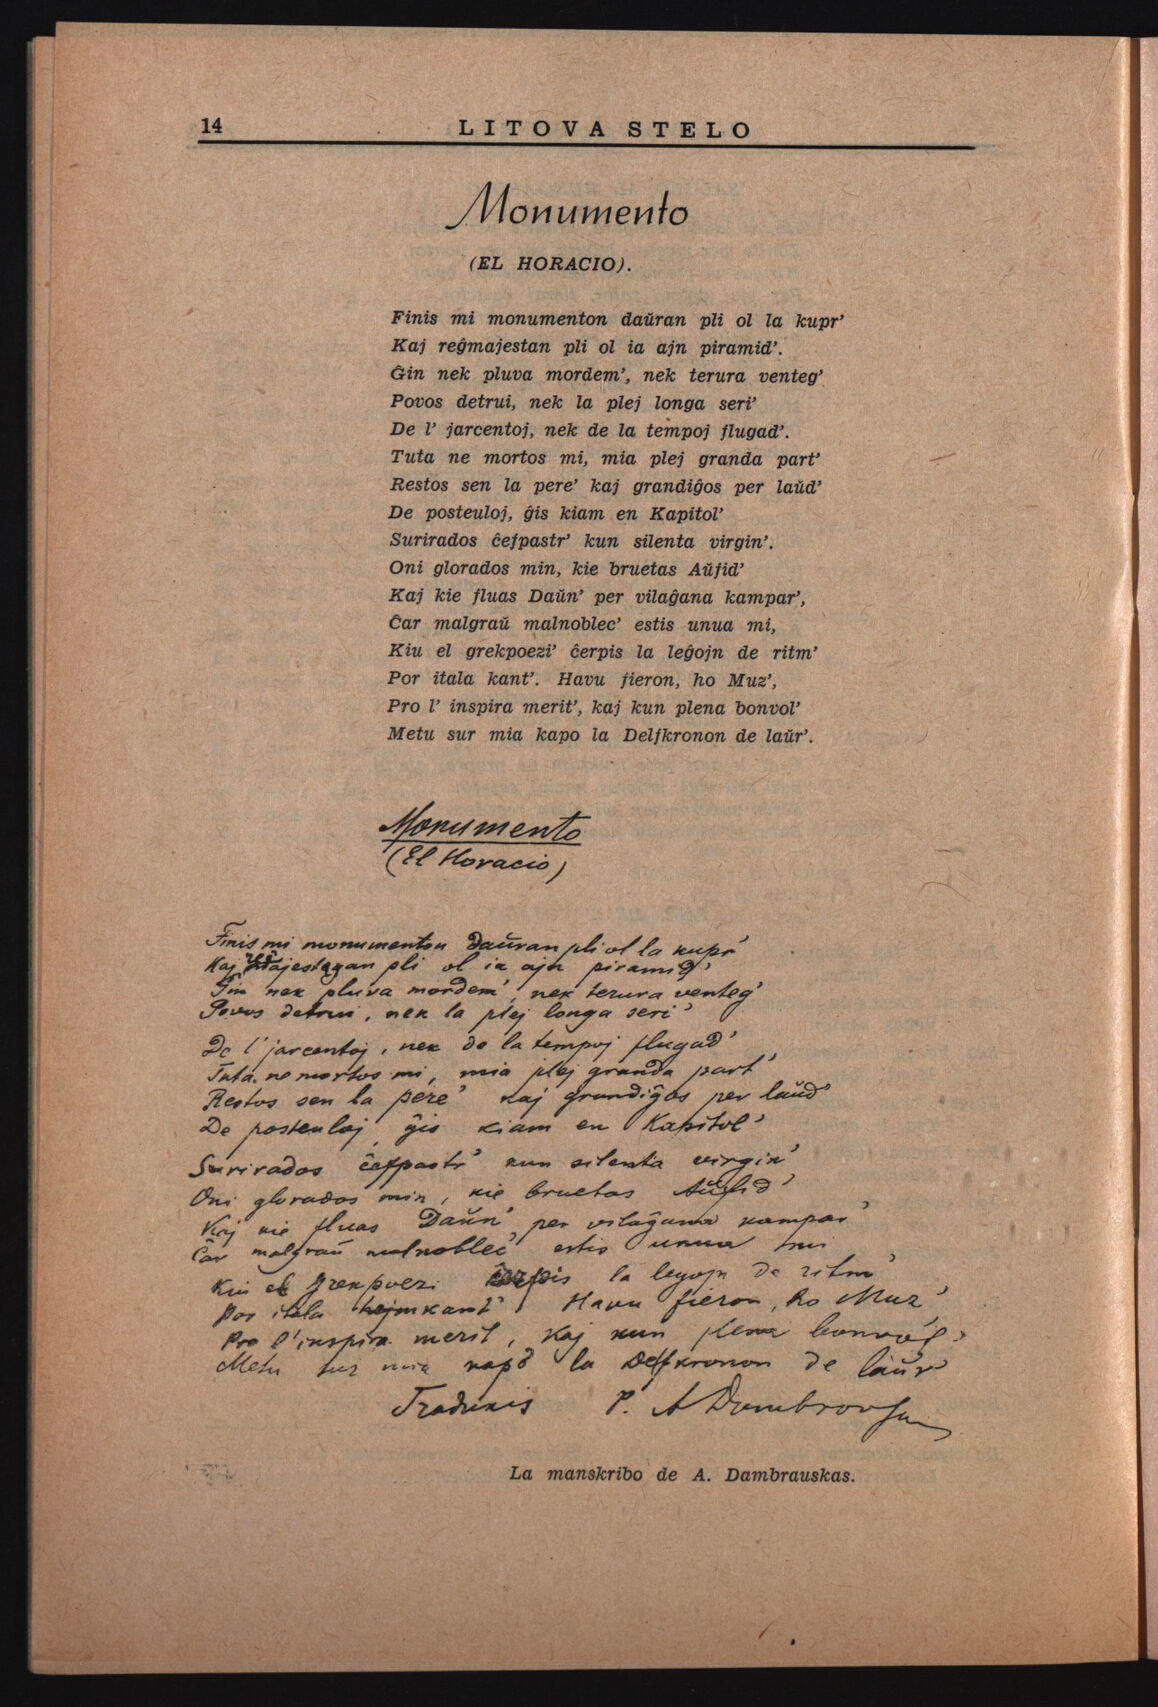 14
LITOVA STELO
Monumento
(EL HORACIO).
Finis mi monumenton daŭran pli ol la kupr’
Kaj reĝmajestan pli ol ia ajn piramid’.
Ĝin nek pluva mordem’, nek terura venteg’
Povos detrui, nek la plej longa seri’
De l’ jarcentoj, nek de la tempoj flugad’.
Tuta ne mortos mi, mia plej granda part’
Restos sen la pere’ kaj grandiĝos per laŭd’
De posteuloj, ĝis kiam en Kapitol’
Surirados ĉefpastr’ kun silenta virgin’.
Oni glorados min, kie bruetas Aŭfid’
Kaj kie fluas Daŭn’ per vilaĝana kampar’,
Ĉar malgraŭ malnoblec’ estis unua mi,
Kiu el grekpoezi’ ĉerpis la leĝojn de ritm’
Por itala kant’. Havu fieron, ho Muz’,
Pro l’ inspira merit’, kaj kun plena bonvol’
Metu sur mia kapo la Delfkronon de laŭr’.
Monumento
(El Horacio)
Finis mi monumenton daŭran pli ol la kupr’
Kaj pli ol ia ajn piramid’
Ĝin nek pluva mordem’, nek terura venteg’
Povos detrui, nek la plej longa seri’
De l’ jarcentoj, nek de la tempoj flugad’
Tuta ne mortos mi, mia plej granda part’
Restos sen la pere’ kaj grandiĝos per laŭd’
De posteuloj, ĝis kiam en Kapitol’
Surirados ĉefpastr’ kun silenta virgin’
Oni glorados min, kie bruetas Aŭfid’
Kaj kie fluas Daŭn’ per vilaĝana kampar’
Ĉar malgraŭ malnoblec’ estis unua mi
Kiu el grekpoezi ĉerpis la leĝojn de ritm’
Por itala hejmkant’ Havu fieron, ho Muz’
Pro l’ inspira merit, kaj kun plena bonvol’
Metu sur mia kap’ la Delfkronon de laŭr’
Tradukis P. A Dombrovski
La manskribo de A. Dambrauskas.